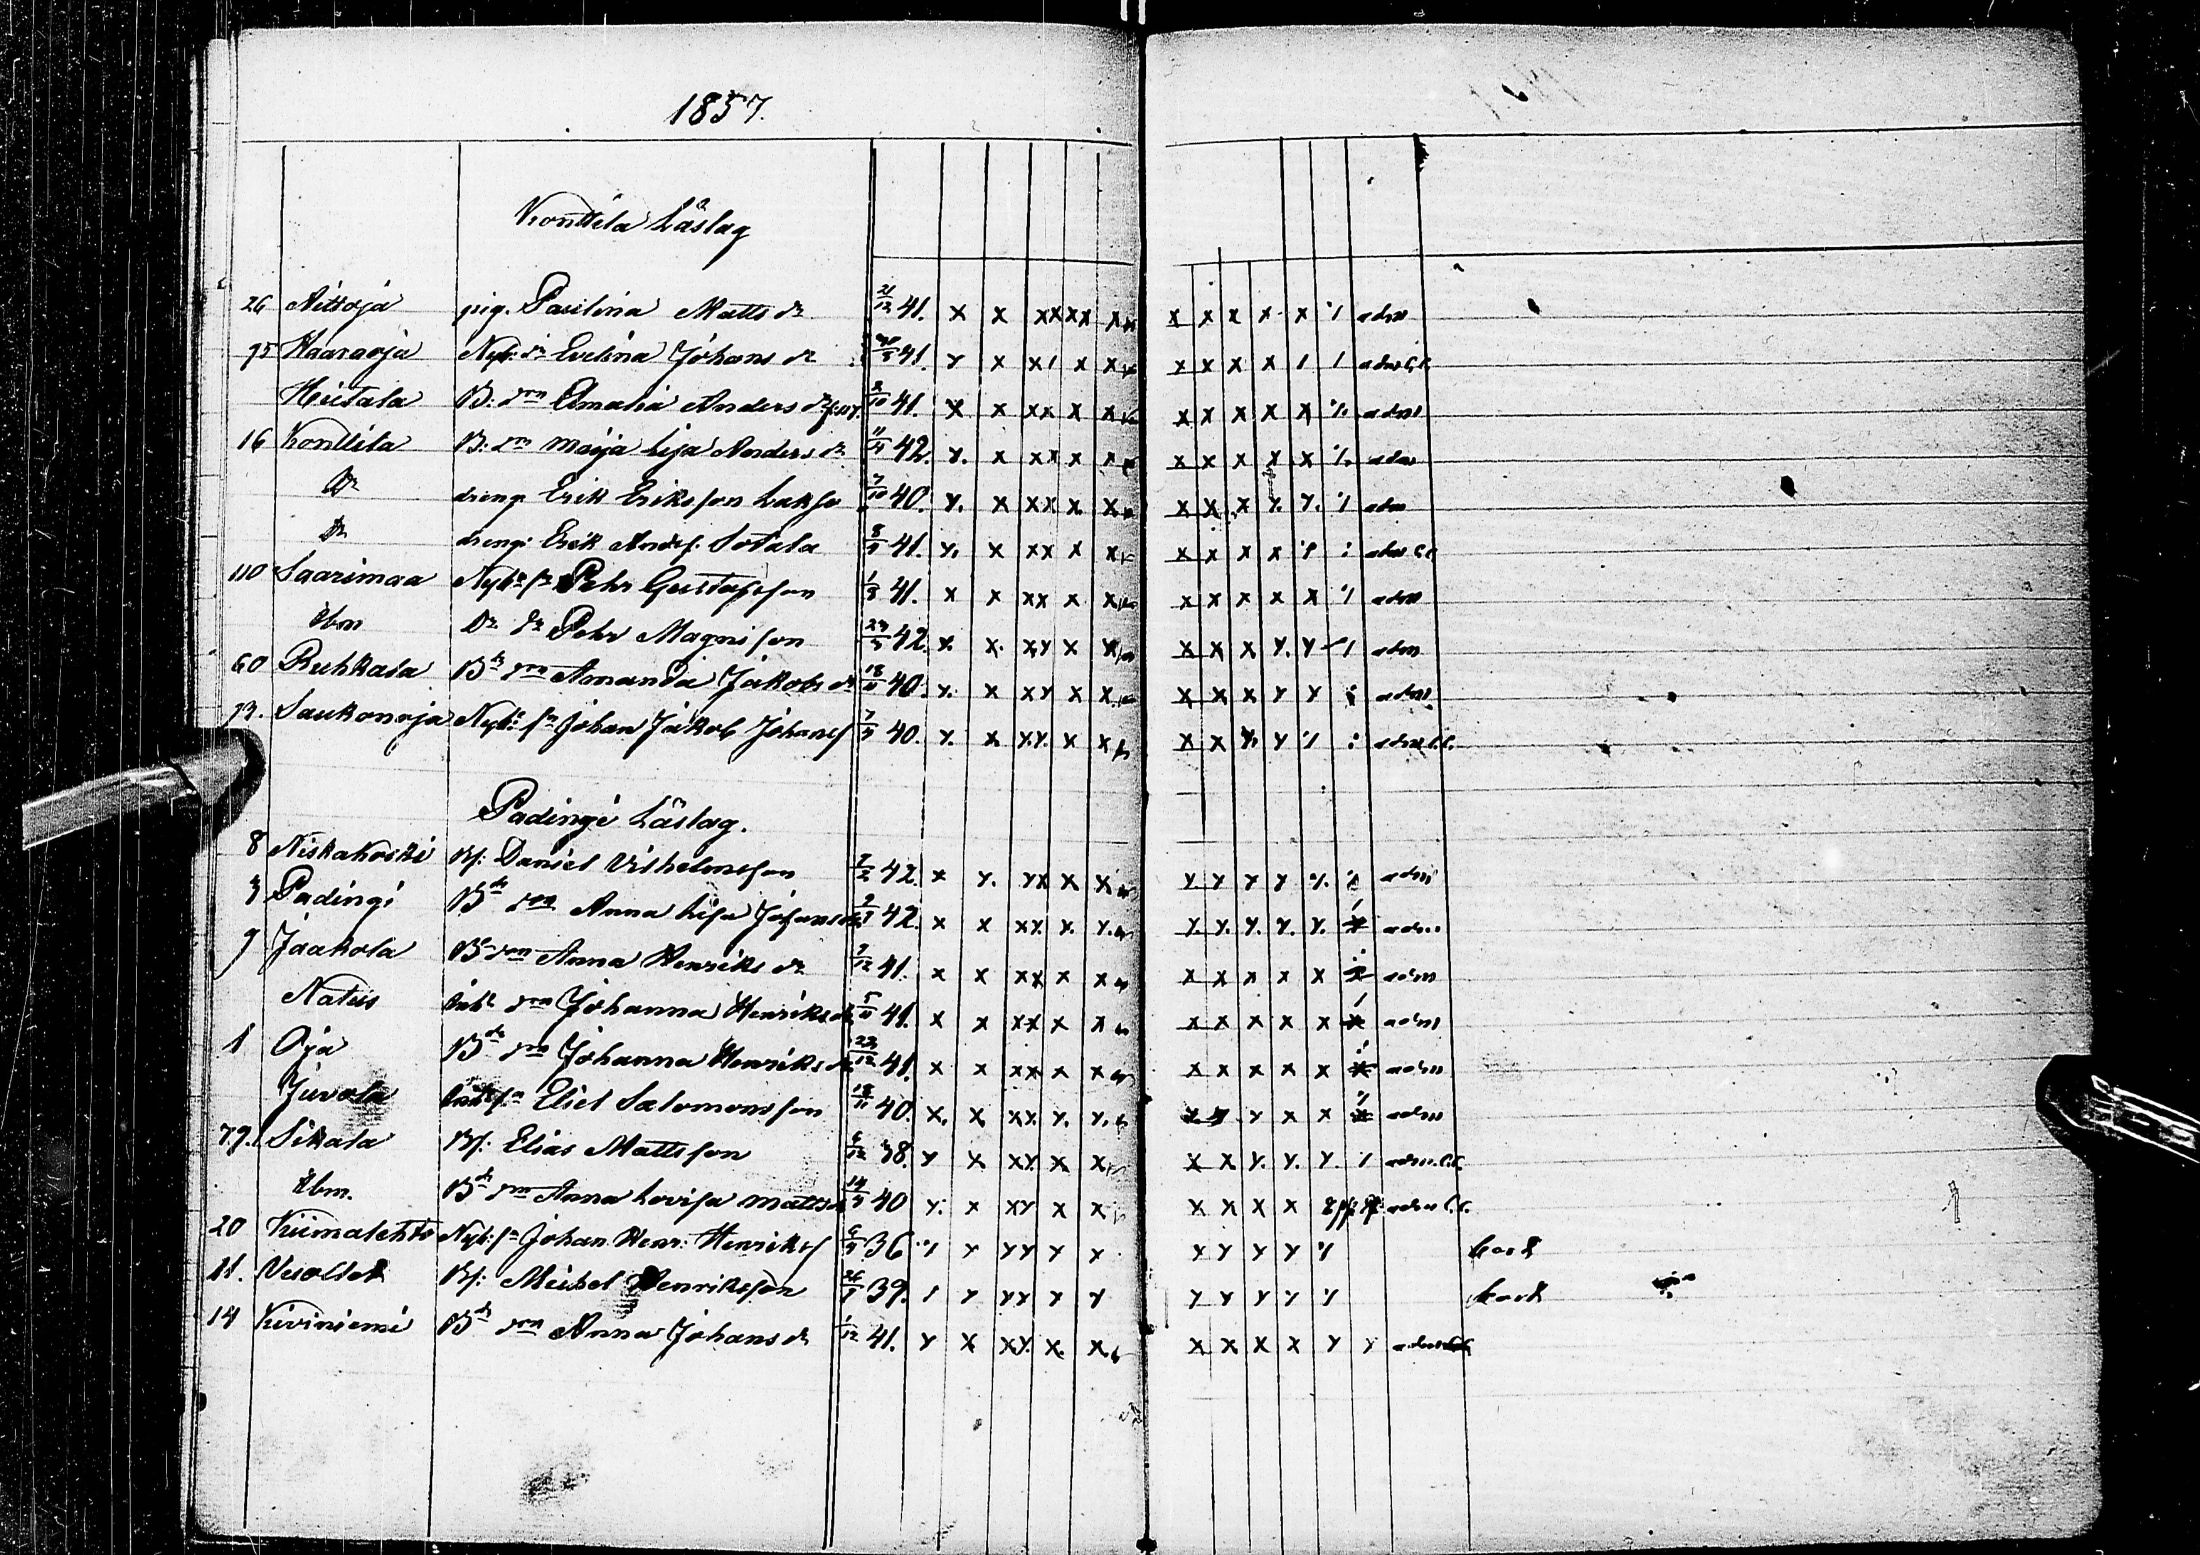 1857.
Konttila Läslag
26 Aittoja pig. Paulina Matts dr 21/12 41. x x xx xx x x x x x x % adm
95 Haaraoja Nyb: dr Evelina Johans dr 41. x x x x x x x x x / / adm
Hietala B: drn Amalia Anders dr 2/10 41. x x xx x x x x x x x % adm
16 Konttila B: drn Maija Lisa Anders dr 11/4 42. x. x xx x x x x x x x % adm
Do dreng Erik Eriksson Lakso 7/10 40. x. x xx x. x. x x x x. x. % adm
Do dreng: Erik Andrs: Sotala 8/9 41. x. x xx x x x x x x adm
110 Saarimaa Nybr sn Pehr Gustafsson 1/9 41. x x xx x x x x x x x % adm
Ibm Do Do Pehr Magnisson 42. x. x. xx x x x x x x. x. adm
60 Ruhkala Bds drn Amanda Jakobs dr 18/11 40. x. x xx x x x x x x x adm
93. Saukonoja Nybr sn Johan Jakob Johans 7/9 40. x. x xx. x x x x x x adm
Padingi Läslag.
8 Niskakoski Bs: Daniel Vilhelmsson 42. x x. xx x x x x x x adm
3 Padingi Bds drn Anna Lisa Johans dr 42. x x xx x. x. x. x. x. x. x. adm
9 Jaakola B drn Anna Henriks dr 7/12 41. x x xx x x x x x x x adm
Natus Inhs drn Johanna Henriks dr 5/11 41. x x xx x x x x x x x adm
1 Oja Bds drn Johanna Henriks dr 22/12 41. x x xx x x x x x x x adm
Juvola Inhs sn Eliel Salomonsson 18/11 40. x. x. xx. x. x. x. x x x x adm
79. Sikala Bs: Elias Mattsson 6/12 38. x x xx x x x x x. x. x. adm
Ibm. Bds drn Anna Lovisa Matts dr 40 x. x xx x x x x x x adm
20 Kiimalehto Nyb: sn Johan Henr: Henriks 6/9 36 % x xx x x x x x x %
11. Bs: Michel Henriksson 39. / x xx x x x x x x %
14 Kiviniemi Bds drn Anna Johans dr 1/12 41. x x xx. x. x. x x x x x x adm